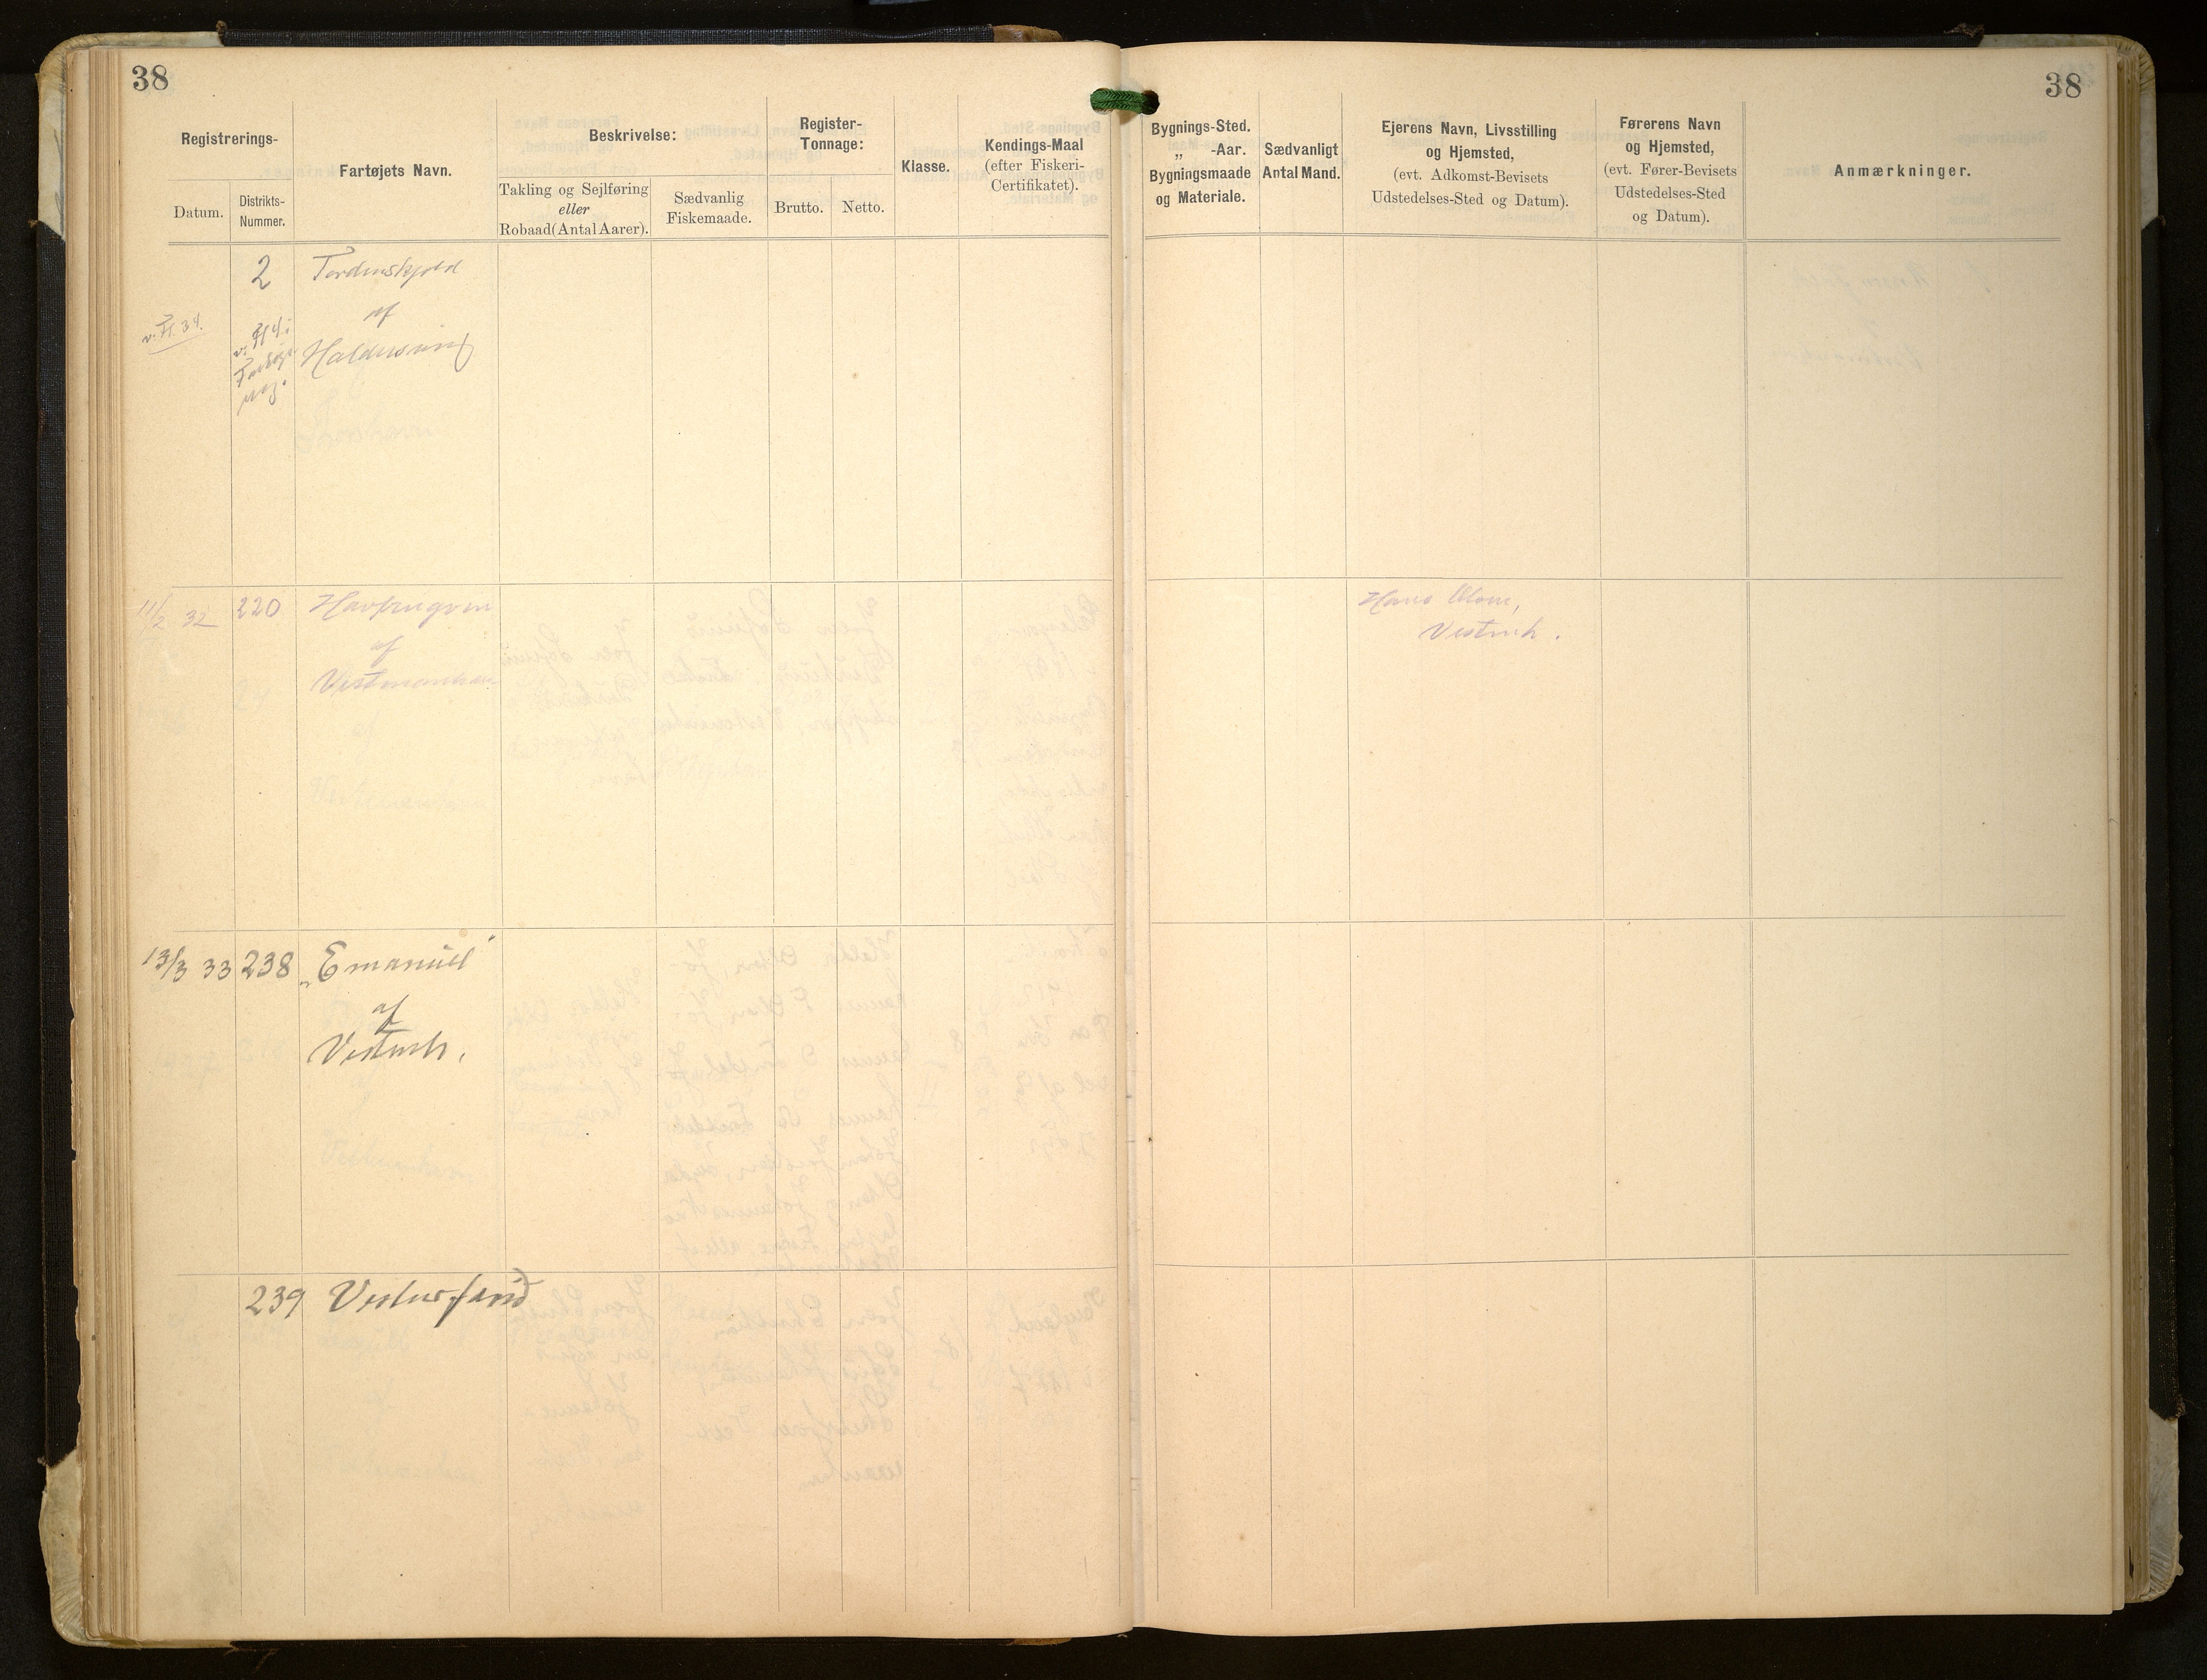 38
38
Registrerings-
Datum.
Distrikts-
Nummer.
Fartøjets Navn.
Beskrivelse:
Takling og Sejlføring
eller
Robaad (Antal Aarer).
Sædvanlig
Fiskemaade.
Register-
Tonnage:
Brutto.
Netto.
Klasse.
Kendings-Maal
(efter Fiskeri-
Certifikatet).
Bygnings-Sted.
„ -Aar.
Bygningsmaade
og Materiale.
Sædvanligt
Antal Mand.
Ejerens Navn, Livsstilling
og Hjemsted,
(evt. Adkomst-Bevisets
Udstedelses-Sted og Datum).
Førerens Navn
og Hjemsted,
(evt. Fører-Bevisets
Udstedelses-Sted
og Datum).
Anmærkninger.
2 Tordenskjold
af
Haldersvig
11/2 32 220 Havfrugvin
af
Vestmanhavn
Hans Olsen,
Vestmh.
13/3 33 238 „Emanuel"
af
Vestmh.
239 Vesturfarið